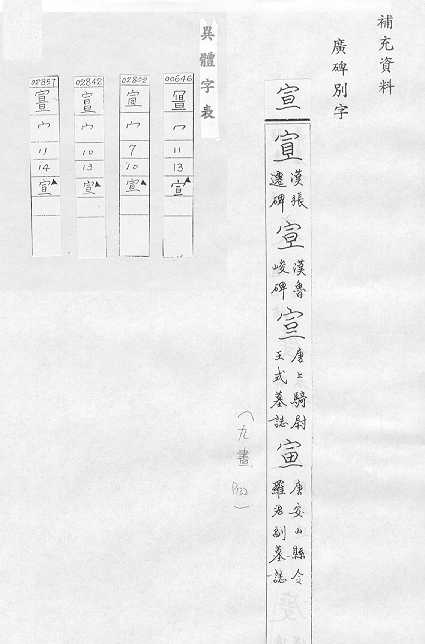 補充資料
廣碑別字
宣
漢張遷碑
漢魯峻碑
唐上騎尉王式墓誌
唐安山縣令羅君副墓誌
(九畫 P132)
異體字表
00646
宀
11
13
宣
02802
宀
7
10
宣
02842
宀
10
13
宣
02857
宀
11
14
宣